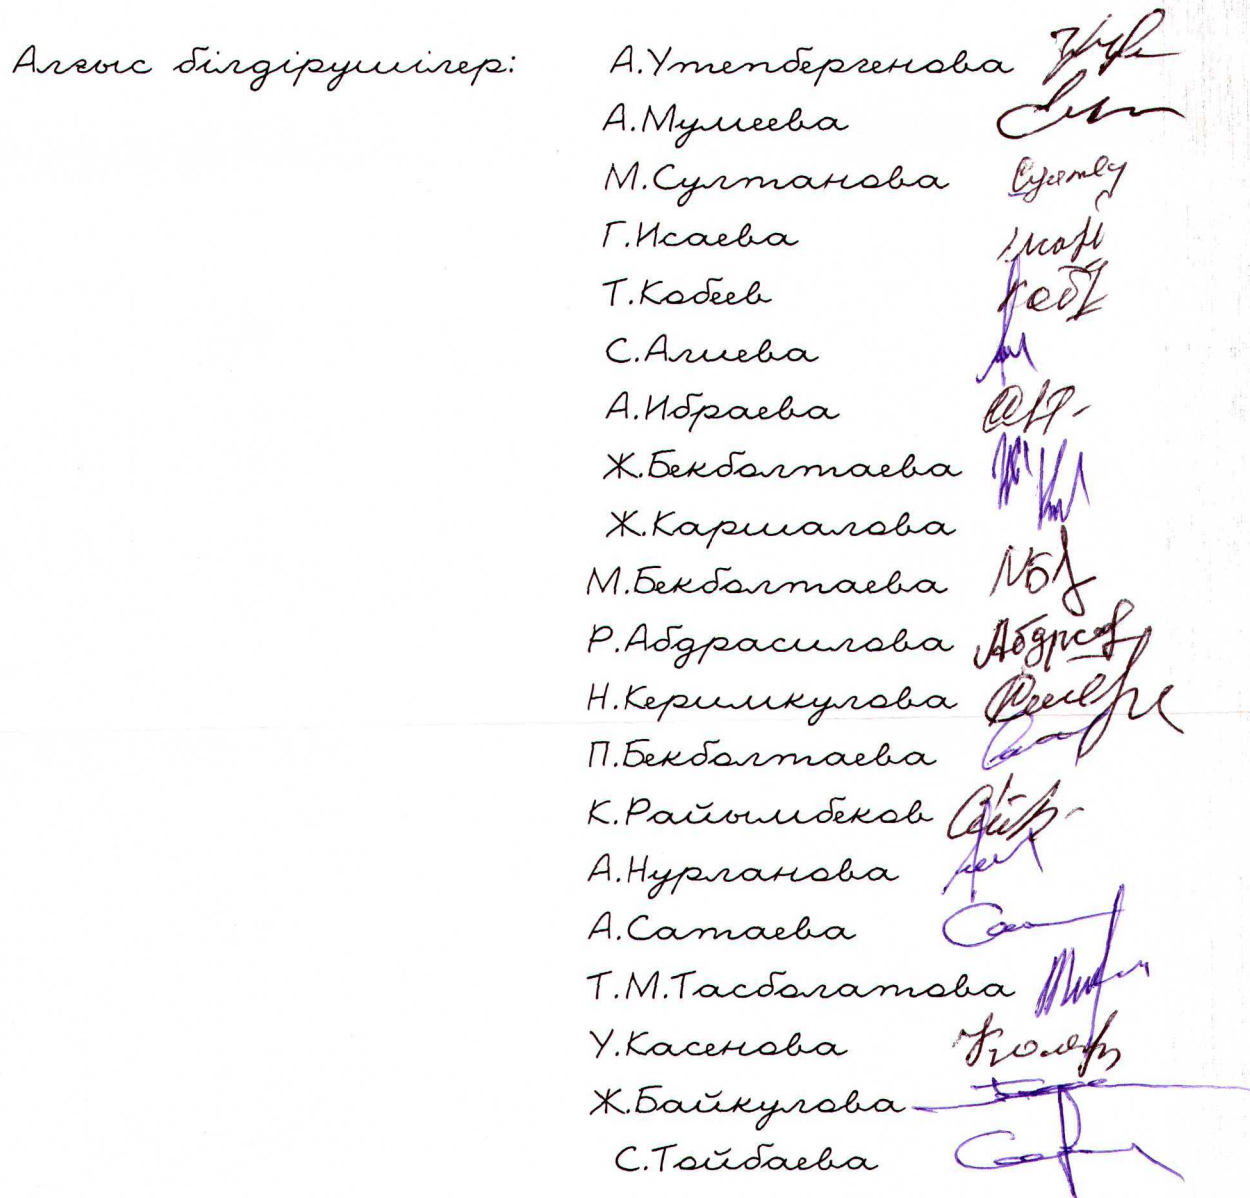 Алғыс білдірушілер: А.Утепбергенова
А.Мумеева
М.Султанова
Г.Исаева
Т.Кобеев
С.Алиева
А.Ибраева
Ж.Бекболтаева
Ж.Каршалова
М.Бекболтаева
Р.Абдрасилова
Н.Керимкулова
П.Бекболтаева
К.Райымбеков
А.Нурланова
А.Сатаева
Т.М.Тасболатова
У.Касенова
Ж.Байкулова
С.Тойбаева